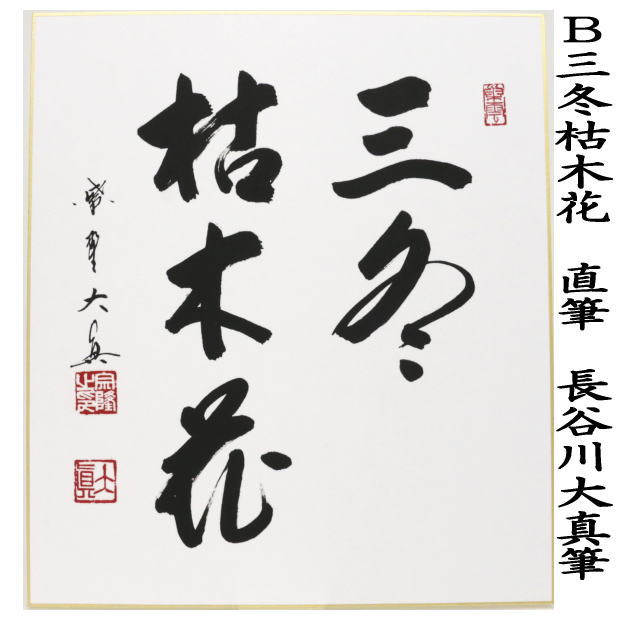 B三冬枯木花　直筆　長谷川大真筆
三冬
枯木花
大真